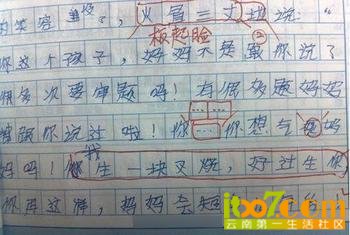 的笑容 没了，火冒三丈地说："
板起脸
你这个孩子，妈妈不是跟你说了
很多次要审题吗！有很多题妈妈
都跟你说过啦！你……你想气死妈
我
妈吗！你生一块叉烧，好过生你
你再这样，妈妈会
itoo7.com
云南第一生活社区